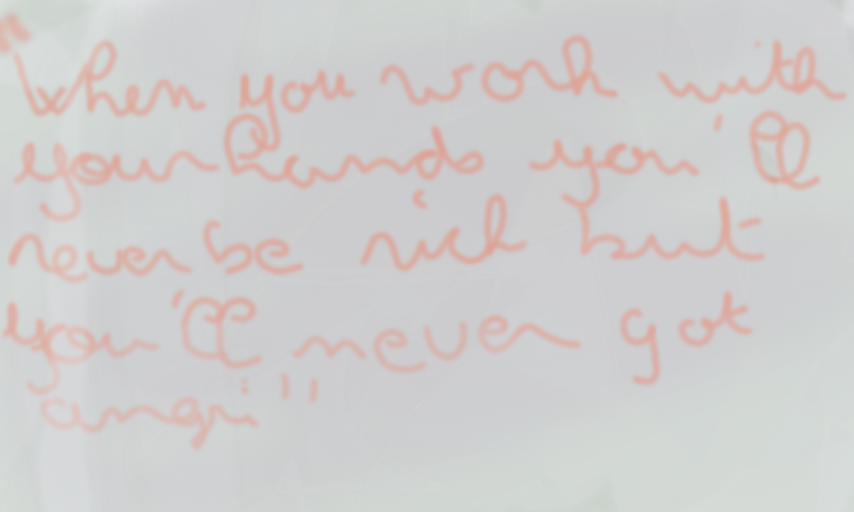 "When you work with
your hands you'll
never be rich but
you'll never got
angri"